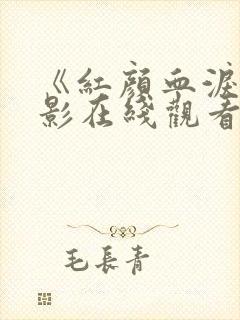 《紅顏血淚
影在綫觀看
毛長青